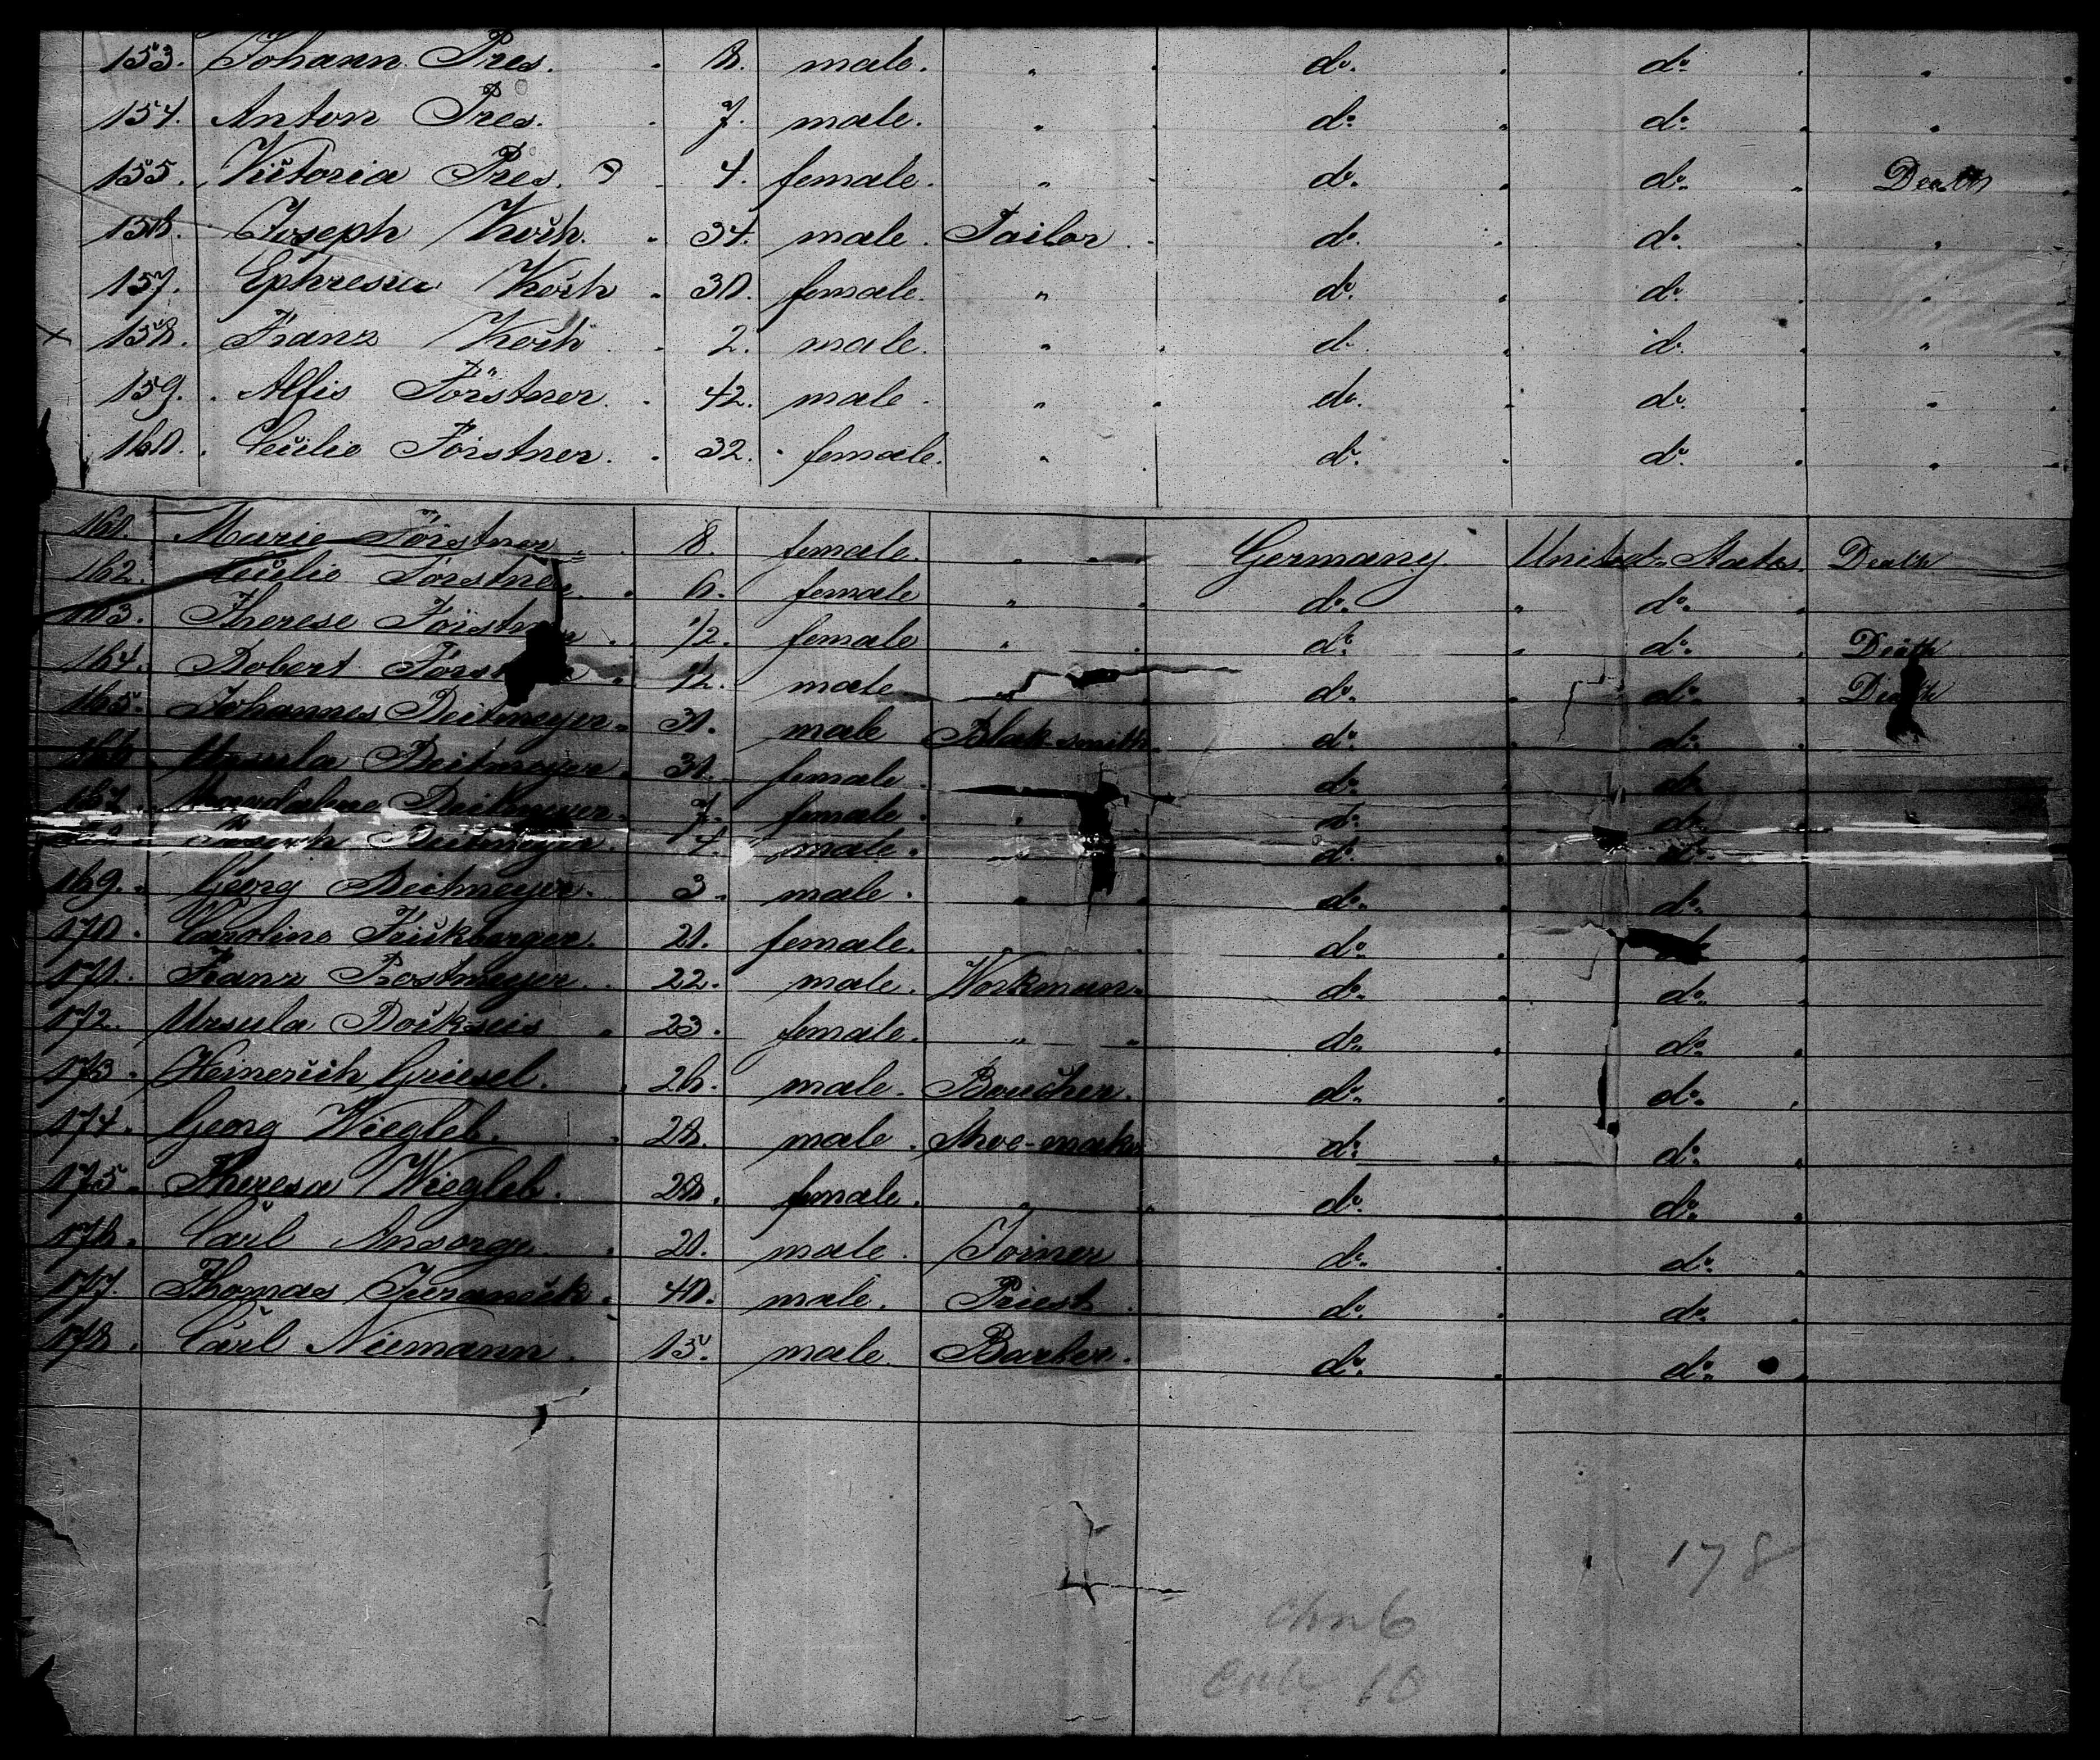 153. Johann Pres. 8. male. " do. do. "
154. Anton Pres. 7. male. " do. do. "
155. Victoria Pres. 4. female. " do. do. Death
156. Joseph Koch. 34. male. Tailor do. do. "
157. Ephresia Koch 30. female. " do. do. "
158. Franz Koch 2. male. " do. do. "
159. Alfis Förstner. 42. male. " do. do. "
160. Cecilie Förstner. 32. female. " do. do. "
161. Marie Förstner 8. female. " Germany. United States. Death
162. Cecilie Förstner 6. female " do. do.
163. Therese Förstner 1/2. female " do. do. Death
164. Robert Förstner 1/2. male " do. do. Death
165. Johannes Reitmeyer. 30. male Blak-smith. do. do.
166. Ursula Reitmeyer. 30. female. do. do.
167. Magdalene Reitmeyer. 7. female. " do. do.
Joseph Reitmeyer. 4. male. " do. do.
169. Georg Reitmeyer. 3. male. " do. do.
170. Caroline Frickberger. 20. female. do.
171. Franz Rostmeyer. 22. male. Workman. do. do.
172. Ursula Bockseis 23. female. " do. do.
173. Heinerich Griesel. 26. male. Boucher. do. do.
174. Georg Wiegleb. 28. male. Shoe-maker do. do.
175. Theresa Wiegleb. 28. female. " do. do.
176. Carl Ansorge 20. male. Joiner do. do.
177. Thomas Juranück. 40. male. Priest do. do.
178. Carl Niemann. 15. male. Barber. do. do.
178
6
10